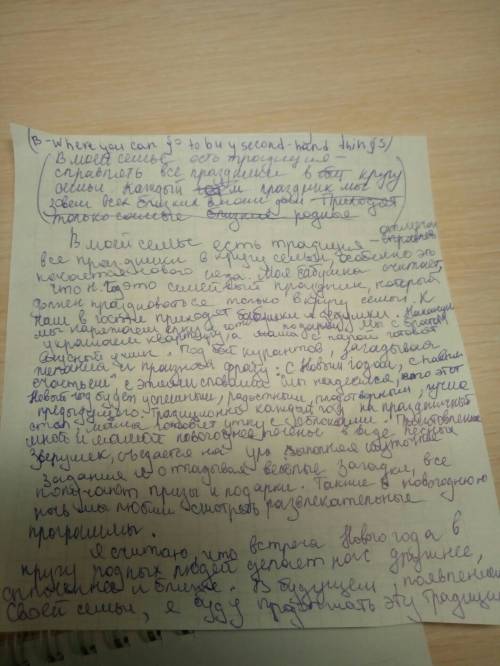 (B-Where you can go to buy second-hand things)
В моей семье есть традиция -
справлять все праздники в кругу
семьи. Каждый праздник мы
зовем всех близких в наш дом
только самые близкие родные
В моей семье есть традиция - отмечать
все праздники в кругу семьи, особенно это
касается нового года. Моя бабушка считает,
что Н. Год это семейный праздник, который
должен праздноваться только в кругу семьи. К
нам в гости приходят бабушки и дедушки. Накануне
мы наряжаем елку, подарки, мы с братом
украшаем квартиру, а мама с папой готовят
вкусный ужин. Под бой курантов, загадывая
желания и произнося фразу: "С Новым годом, с новым
счастьем", с этими словами мы надеемся, что этот
Новый год будет успешным, радостным, плодотворным, лучше
предыдущего. Традиционно каждый год на праздничный
стол мама готовит утку с яблоками. Приготовленное
мной и мамой новогоднее печенье в виде лесных
зверушек, съедается на ура. Выполняя шуточные
задания и отгадывая веселые загадки, все
получают призы и подарки. Также в новогоднюю
ночь мы любим смотреть развлекательные
программы.
Я считаю, что встреча Нового года в
кругу родных людей делает нас дружнее,
сплоченнее и ближе. В будущем, с появлением
своей семьи, я буду продолжать эту традицию